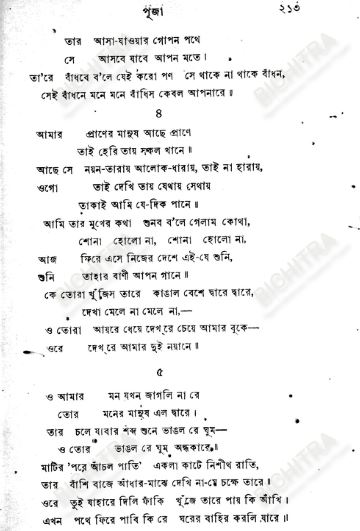 পূজা ২১৩
তার আসা-যাওয়ার গোপন পথে
সে আসবে যাবে আপন মতে।
তা'রে বাঁধবে ব'লে যেই করো পণ সে থাকে না থাকে বাঁধন,
সেই বাঁধনে মনে মনে বাঁধিস কেবল আপনারে॥
৪
আমার প্রাণের মানুষ আছে প্রাণে
তাই হেরি তায় সকল খানে॥
আছে সে নয়ন-তারায় আলোক-ধারায়, তাই না হারায়,
ওগো তাই দেখি তায় যেথায় সেথায়
তাকাই আমি যে-দিক পানে॥
আমি তার মুখের কথা শুনব ব'লে গেলাম কোথা,
শোনা হোলো না, শোনা হোলো না,
আজ ফিরে এসে নিজের দেশে এই-যে শুনি,
শুনি তাহার বাণী আপন গানে॥
কে তোরা খুঁজিস তারে কাঙাল বেশে দ্বারে দ্বারে,
দেখা মেলে না মেলে না,—
ও তোরা আয়রে ধেয়ে দেখ্‌রে চেয়ে আমার বুকে—
ওরে দেখ্‌রে আমার দুই নয়ানে॥
৫
ও আমার মন যখন জাগলি না রে
তোর মনের মানুষ এল দ্বারে।
তার চলে যাবার শব্দ শুনে ভাঙল রে ঘুম—
ও তোর ভাঙল রে ঘুম অন্ধকারে॥
মাটির 'পরে আঁচল পাতি' একলা কাটে নিশীথ রাতি,
তার বাঁশি বাজে আঁধার-মাঝে দেখি না-যে চক্ষে তারে॥
ওরে তুই যাহারে দিলি ফাঁকি খুঁজে তারে পায় কি আঁখি।
এখন পথে ফিরে পাবি কি রে ঘরের বাহির করলি দ্বারে॥